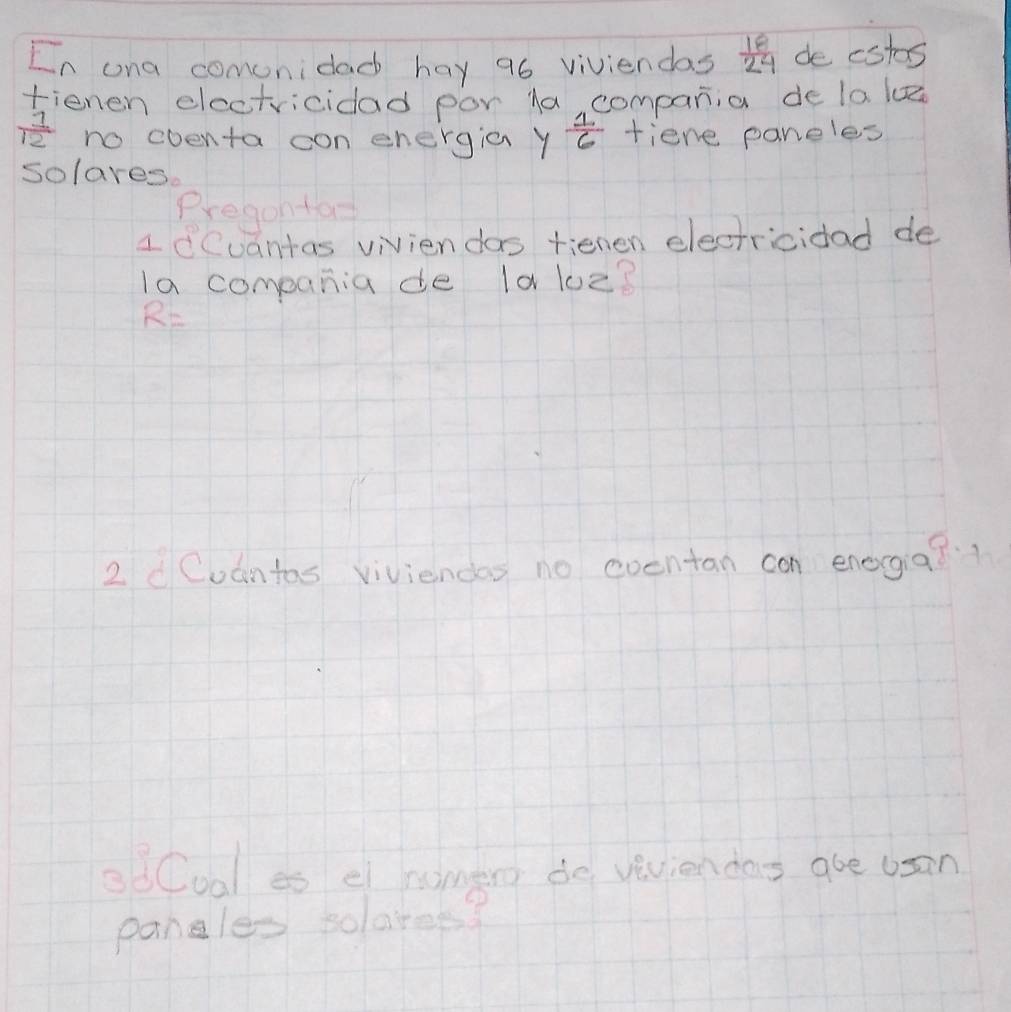 En una comunidad hay 96 viviendas 18/24 de estas
tienen electricidad por la compañia de la luz
1/12 no cuenta con energia y 1/6 tiene paneles
solares.
Preguntas
1 ¿Cuántas viviendas tienen electricidad de
la compañia de la luz?
R=
2 ¿Cuántas viviendas no cuentan con energia?
3 ¿Cual es el numero de viviendas que usan
paneles solares?